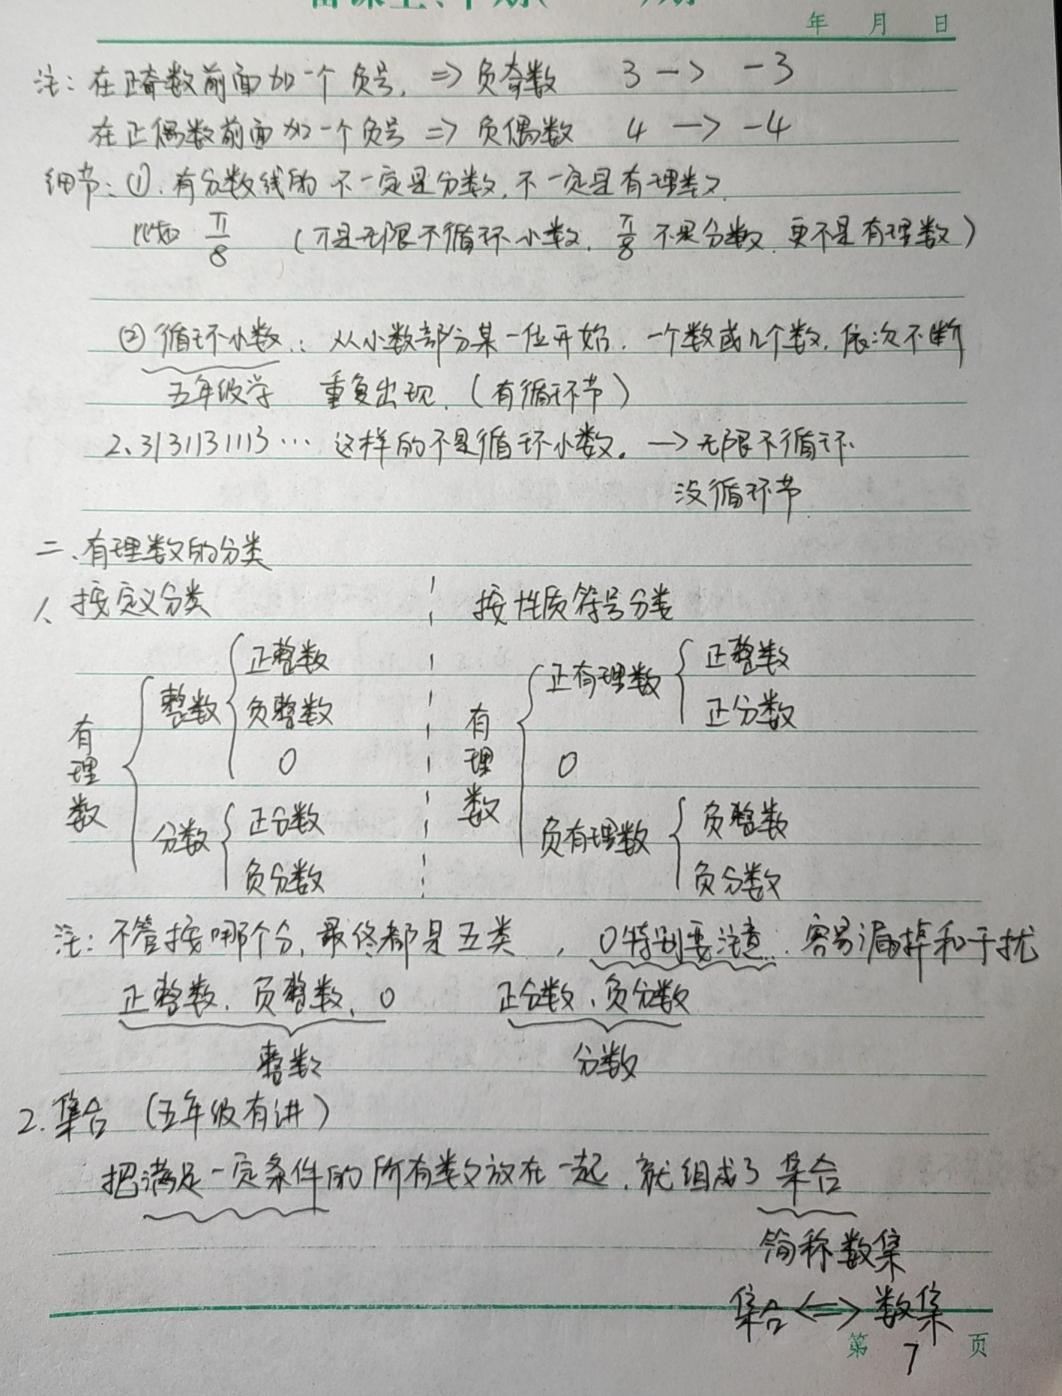 年 月 日
注：在正奇数前面加一个负号，=> 负奇数 3 —> -3
在正偶数前面加一个负号 => 负偶数 4 —> -4
细节：①.有分数线的不一定是分数，不一定是有理数.
比如 π/8 （π是无限不循环小数，π/8 不是分数，更不是有理数）
②循环小数：从小数部分某一位开始，一个数或几个数，依次不断
五年级学 重复出现.（有循环节）
2.3131131113… 这样的不是循环小数。—> 无限不循环
没循环节
二、有理数的分类
1、按定义分类 按性质符号分类
有理数 { 整数 { 正整数 负整数 0
分数 { 正分数 负分数
有理数 { 正有理数 { 正整数 正分数
0
负有理数 { 负整数 负分数
注：不管按哪个分，最终都是五类，0特别要注意：容易漏掉和干扰
正整数、负整数、0 正分数、负分数
整数 分数
2.集合（五年级有讲）
把满足一定条件的所有数放在一起，就组成了集合
简称数集
集合<=>数集
第 7 页